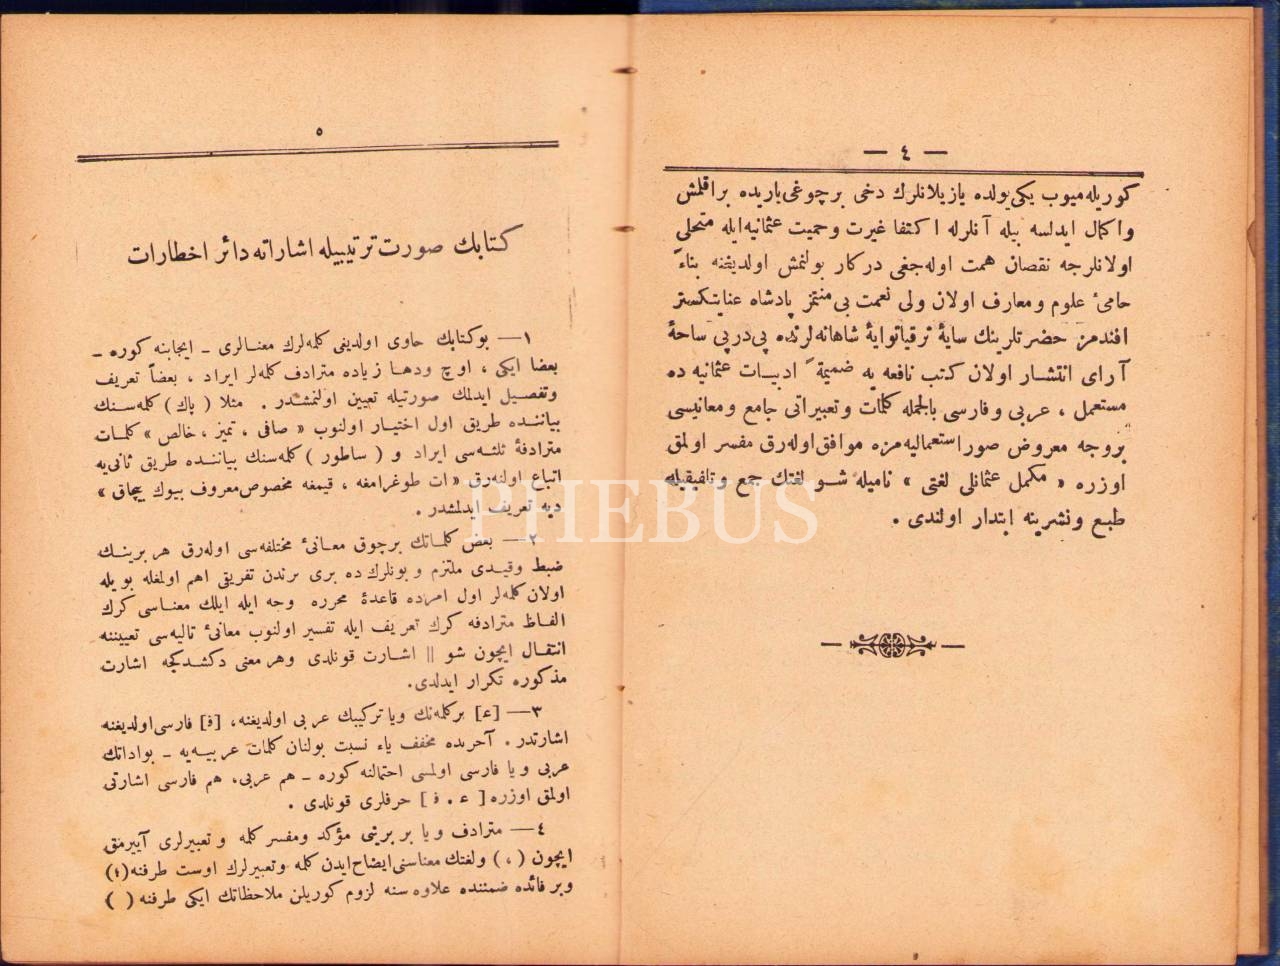 — ٤ —
كوريله‌ميوب يكى يولده يازيلانلرك دخى بر چوغى ياريده براقلمش
واكمال ايدلسه بيله آنلرله اكتفا غيرت وحميت عثمانيه ايله متحلى
اولانلرجه نقصان همت اوله‌جغى دركار بولنمش اولديغنه بناءً
حامئ علوم ومعارف اولان ولى نعمت بى منتمز پادشاه عنايتكستر
افندمز حضرتلرينك سايۀ ترقياتوايۀ شاهانه‌لرنده پى درپى ساحۀ
آراى انتشار اولان كتب نافعه يه ضميمةً ادبيات عثمانيه ده
مستعمل ، عربى وفارسى بالجمله كلمات وتعبيراتى جامع ومعانيسى
بروجه معروض صور استعماليه‌مزه موافق اوله‌رق مفسر اولمق
اوزره « مكمل عثمانلى لغتى » ناميله شو لغتك جمع وتلفيقيله
طبع ونشرينه ابتدار اولندى .
٥
كتابك صورت ترتيبيله اشاراته دائر اخطارات
١— بوكتابك حاوى اولديغى كلمه‌لرك معنالرى ـ ايجابنه كوره ـ
بعضا ايكى ، اوچ ودها زياده مترادف كلمه‌لر ايراد ، بعضاً تعريف
وتفصيل ايدلمك صورتيله تعيين اولنمشدر . مثلا ( پاك ) كلمه‌سنك
بياننده طريق اول اختيار اولنوب « صافى ، تميز ، خالص » كلمات
مترادفۀ ثلثه‌سى ايراد و ( ساطور ) كلمه‌سنك بياننده طريق ثانى‌يه
اتباع اولنه‌رق « ات طوغرامغه ، قيمغه مخصوص معروف بيوك بيچاق »
ديه تعريف ايدلمشدر .
٢— بعض كلماتك برچوق معانئ مختلفه‌سى اوله‌رق هر برينك
ضبط وقيدى ملتزم وبونلرك ده برى برندن تفريقى اهم اولمغله بويله
اولان كلمه‌لر اول امرده قاعدۀ محرره وجه ايله ايلك معناسى كرك
الفاظ مترادفه كرك تعريف ايله تفسير اولنوب معانئ تاليه‌سى تعييننه
انتقال ايچون شو || اشارت قونلدى وهر معنى دكشدكجه اشارت
مذكوره تكرار ايدلدى.
٣— [ع] بركلمه‌نك ويا تركيبك عربى اولديغنه، [ف] فارسى اولديغنه
اشارتدر . آخرنده مخفف ياء نسبت بولنان كلمات عربيه‌يه ـ بواداتك
عربى ويا فارسى اولمسى احتمالنه كوره ـ هم عربى، هم فارسى اشارتى
اولمق اوزره [ ع . ف ] حرفلرى قونلدى .
٤— مترادف ويا بر بريتى مؤكد ومفسر كلمه وتعبيرلرى آييرمق
ايچون ( ، ) ولغتك معناسنى ايضاح ايدن كلمه وتعبيرلرك اوست طرفنه (؛)
وبر فائده ضمننده علاوه سنه لزوم كوريلن ملاحظاتك ايكى طرفنه ( )
PHEBUS